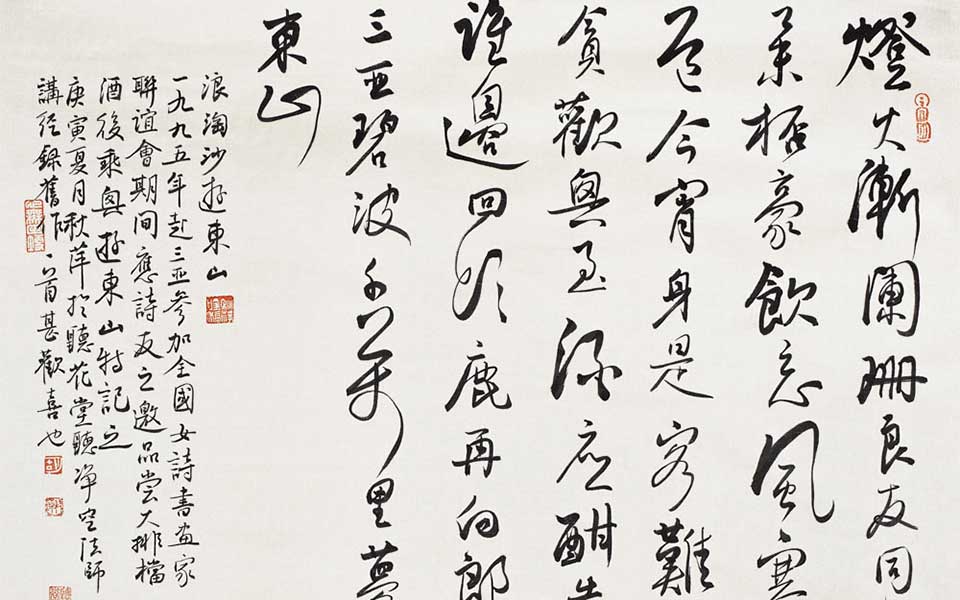 燈火漸闌珊良友同
舉杯豪飲忘風寒
道今宵身是客難
貪歡興至酒應酣
誰邊回頭鹿再向郎
三亞碧波千萬里夢
東山
浪淘沙遊東山
一九九五年赴三亞參加全國女詩書畫家
聯誼會期間應詩友之邀品嘗大排檔
酒後乘興遊東山特記之
庚寅夏月秋萍於聽花堂聽淨空法師
講經錄舊作一首甚歡喜也